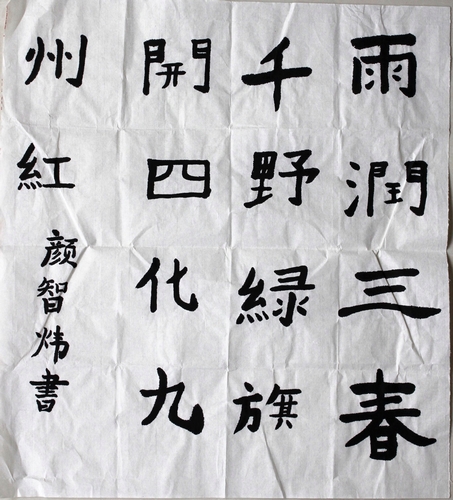 雨潤三春
千野綠旗
開四化九
州紅
顔智炜書